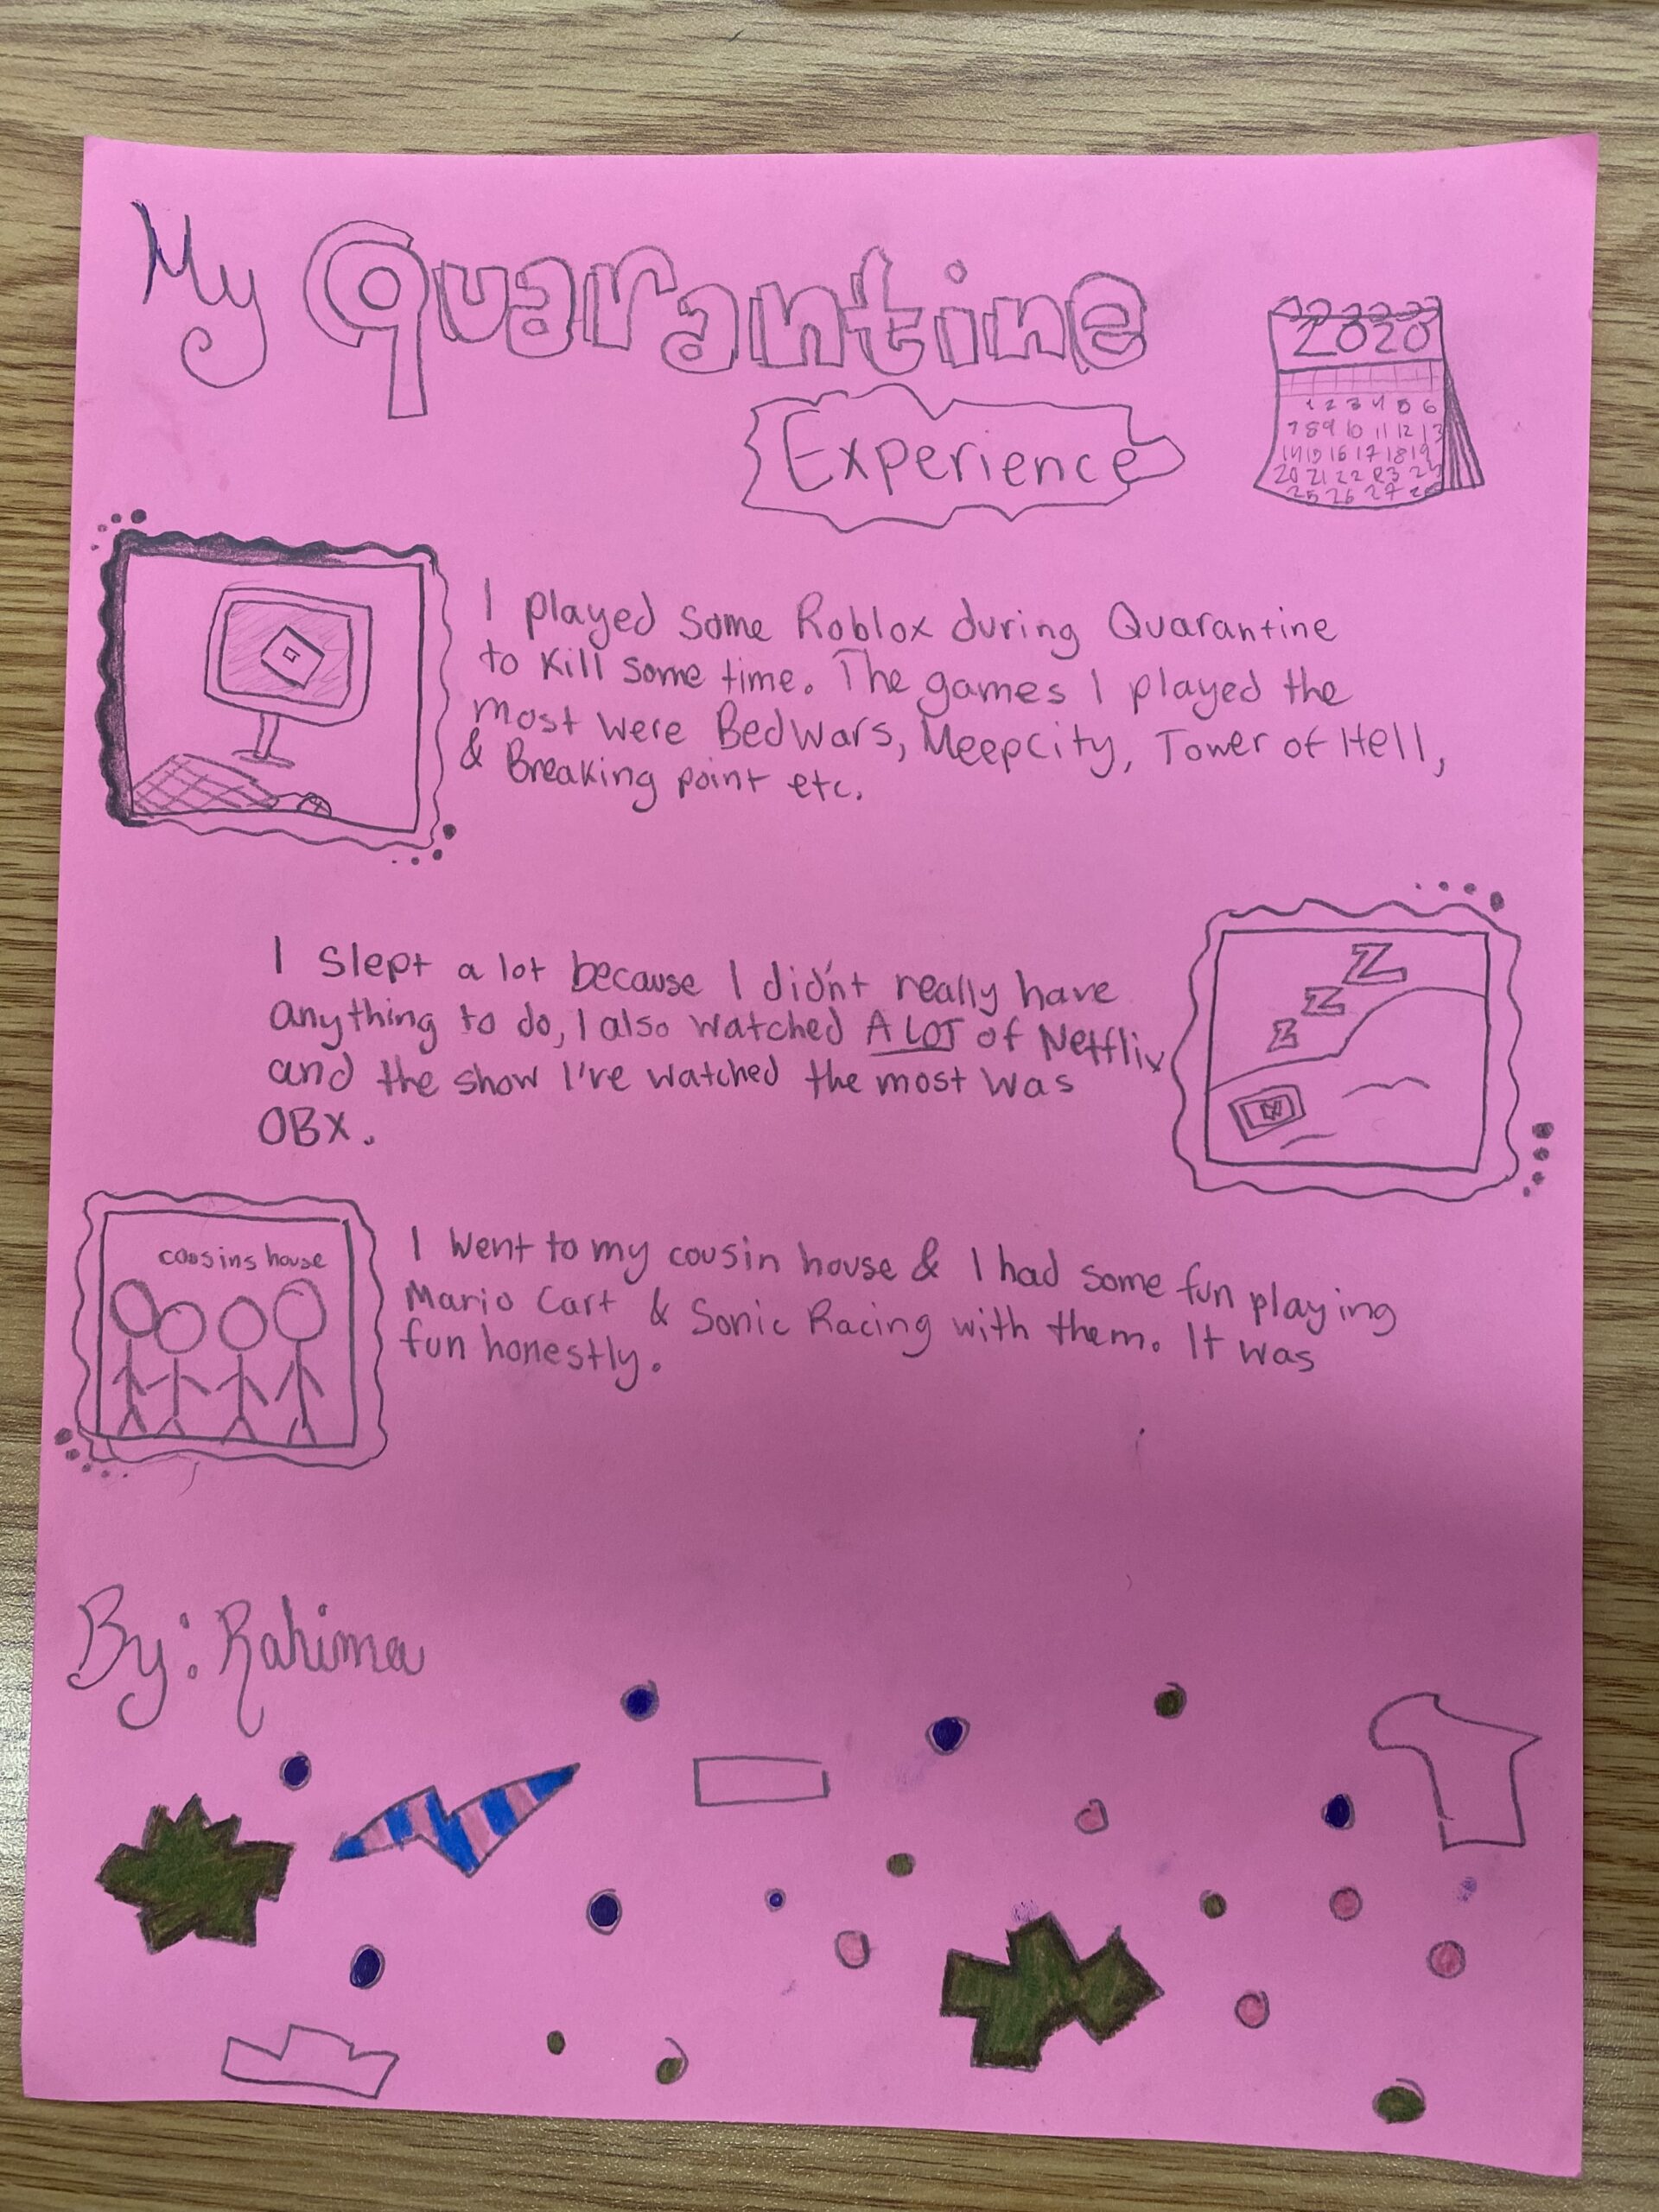 My Quarantine
Experience
2020
1 2 3 4 5 6
7 8 9 10 11 12 13
14 15 16 17 18 19
20 21 22 23 24
25 26 27
I played some Roblox during Quarantine
to kill some time. The games I played the
most were BedWars, MeepCity, Tower of Hell,
& Breaking point etc.
I slept a lot because I didn't really have
anything to do, I also watched A LOT of Netflix
and the show I've watched the most was
OBX.
Z
Z
Z
N
cousins house
I went to my cousin house & I had some fun playing
Mario Cart & Sonic Racing with them. It was
fun honestly.
By: Rahima